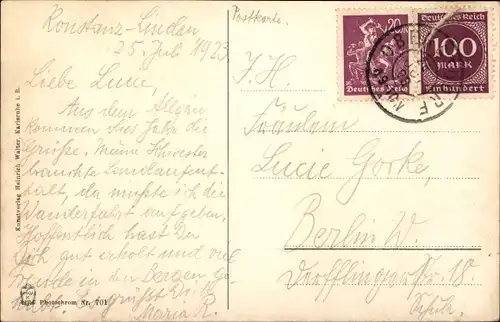 Konstanz-Lindau
25. Juli 1923.
Liebe Lucie,
Aus dem Allgäu
kommen dies Jahr die
Grüße. Meine Schwester
brauchte Landaufent-
halt, da mußte ich die
Wanderfahrt aufgeben.
Hoffentlich hast Du
Dich gut erholt und viel
Freude in den Bergen ge-
habt. Es grüßt Dich
Maria R.
Kunstverlag Heinrich Walter, Karlsruhe i. B.
Photochrom Nr. 701
Postkarte.
20
Deutsches Reich
Deutsches Reich
100
MARK
Einhundert
I. H.
Fräulein
Lucie Gorke,
Berlin W.
Dörfflingerstr. 18.
Schule.